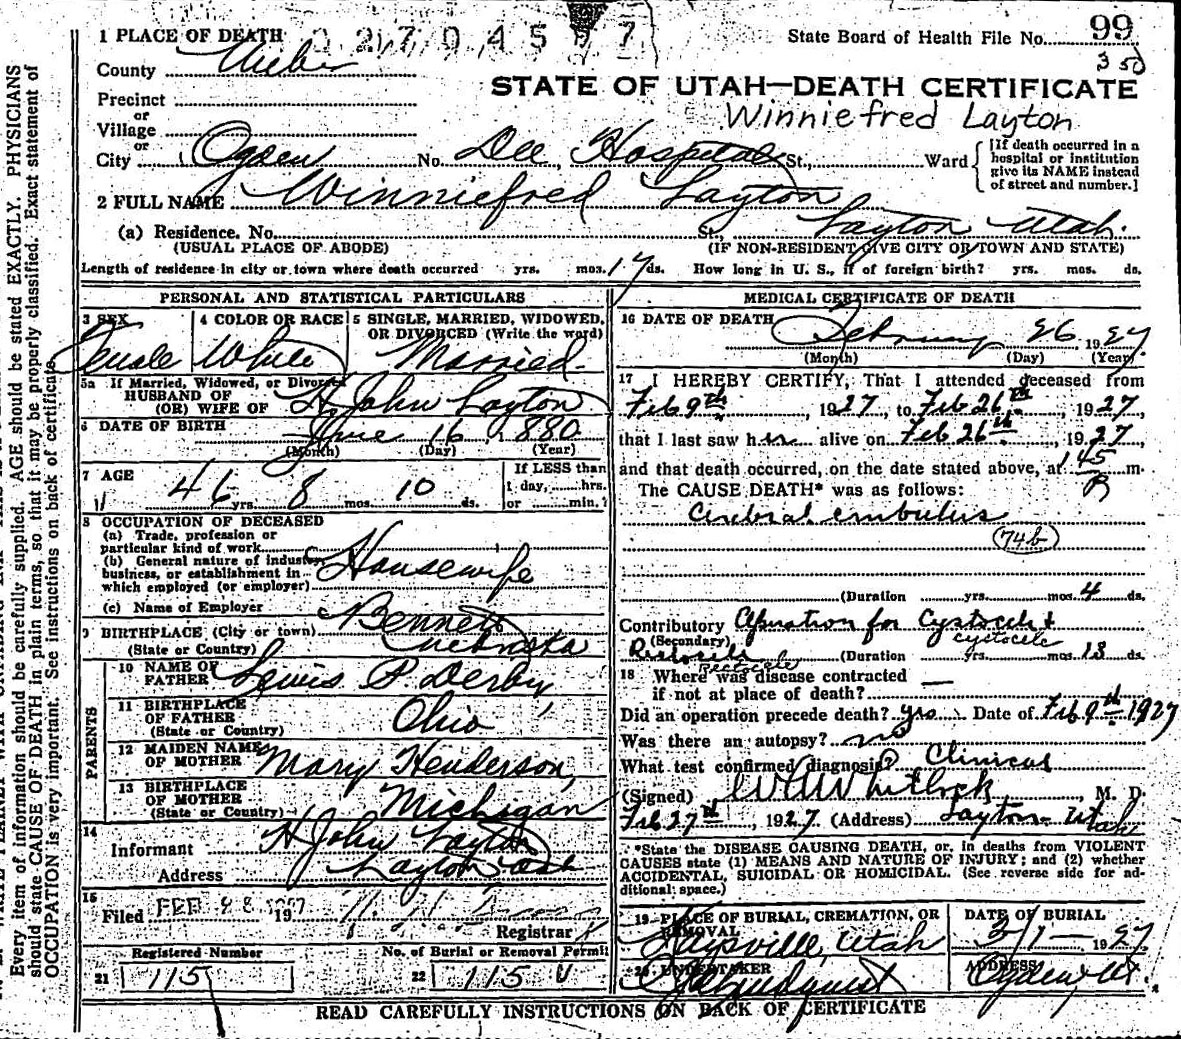 1 PLACE OF DEATH 02704597 State Board of Health File No. 99
3 50
County Weber
STATE OF UTAH—DEATH CERTIFICATE
Precinct
or
Winniefred Layton
Village
or
City Ogden No. Dee Hospital St., Ward
[If death occurred in a hospital or institution give its NAME instead of street and number.]
2 FULL NAME Winniefred Layton
(a) Residence. No. St., Layton Utah.
(USUAL PLACE OF ABODE) (IF NON-RESIDENT GIVE CITY OR TOWN AND STATE)
Length of residence in city or town where death occurred yrs. mos. 17 ds. How long in U. S., if of foreign birth? yrs. mos. ds.
PERSONAL AND STATISTICAL PARTICULARS
3 SEX 4 COLOR OR RACE 5 SINGLE, MARRIED, WIDOWED,
OR DIVORCED (Write the word)
Female White Married.
5a If Married, Widowed, or Divorced
HUSBAND OF
(OR) WIFE OF H John Layton
6 DATE OF BIRTH June 16, 1880
(Month) (Day) (Year)
7 AGE If LESS than
46 yrs. 8 mos. 10 ds. 1 day, hrs.
or min.?
8 OCCUPATION OF DECEASED
(a) Trade, profession or
particular kind of work
(b) General nature of industry,
business, or establishment in
which employed (or employer) Housewife
(c) Name of Employer
9 BIRTHPLACE (City or town) Bennett
(State or Country) Nebraska
PARENTS
10 NAME OF
FATHER Lewis P. Derby,
11 BIRTHPLACE
OF FATHER Ohio
(State or Country)
12 MAIDEN NAME
OF MOTHER Mary Henderson,
13 BIRTHPLACE
OF MOTHER Michigan
(State or Country)
14
Informant H John Layton
Address Layton Utah
15
Filed FEB 28 1927 19
Registrar
Registered Number No. of Burial or Removal Permit
21 115 22 115
MEDICAL CERTIFICATE OF DEATH
16 DATE OF DEATH February 26, 1927
(Month) (Day) (Year)
17 I HEREBY CERTIFY, That I attended deceased from
Feb 9th, 1927, to Feb 26th, 1927
that I last saw her alive on Feb 26th, 1927
and that death occurred, on the date stated above, at 145 P m.
The CAUSE DEATH* was as follows:
Cerebral embulus
74b
(Duration yrs. mos. 4 ds.
Contributory Operation for Cystocele &
(Secondary) cystocele
Rectocele (Duration yrs. mos. 13 ds.
Rectocele
18 Where was disease contracted
if not at place of death? —
Did an operation precede death? yes Date of Feb 9th 1927
Was there an autopsy? no
What test confirmed diagnosis? Clinical
(Signed) W W Whitlock, M. D.
Feb 27th, 1927 (Address) Layton- Utah
*State the DISEASE CAUSING DEATH, or, in deaths from VIOLENT
CAUSES state (1) MEANS AND NATURE OF INJURY; and (2) whether
ACCIDENTAL, SUICIDAL OR HOMICIDAL. (See reverse side for ad-
ditional space.)
19 PLACE OF BURIAL, CREMATION, OR
REMOVAL
Kaysville, Utah
DATE OF BURIAL
3/1- 1927
20 UNDERTAKER
ADDRESS
Ogden, Ut.
READ CAREFULLY INSTRUCTIONS ON BACK OF CERTIFICATE
Every item of information should be carefully supplied. AGE should be stated EXACTLY. PHYSICIANS
should state CAUSE OF DEATH in plain terms, so that it may be properly classified. Exact statement of
OCCUPATION is very important. See instructions on back of certificate.